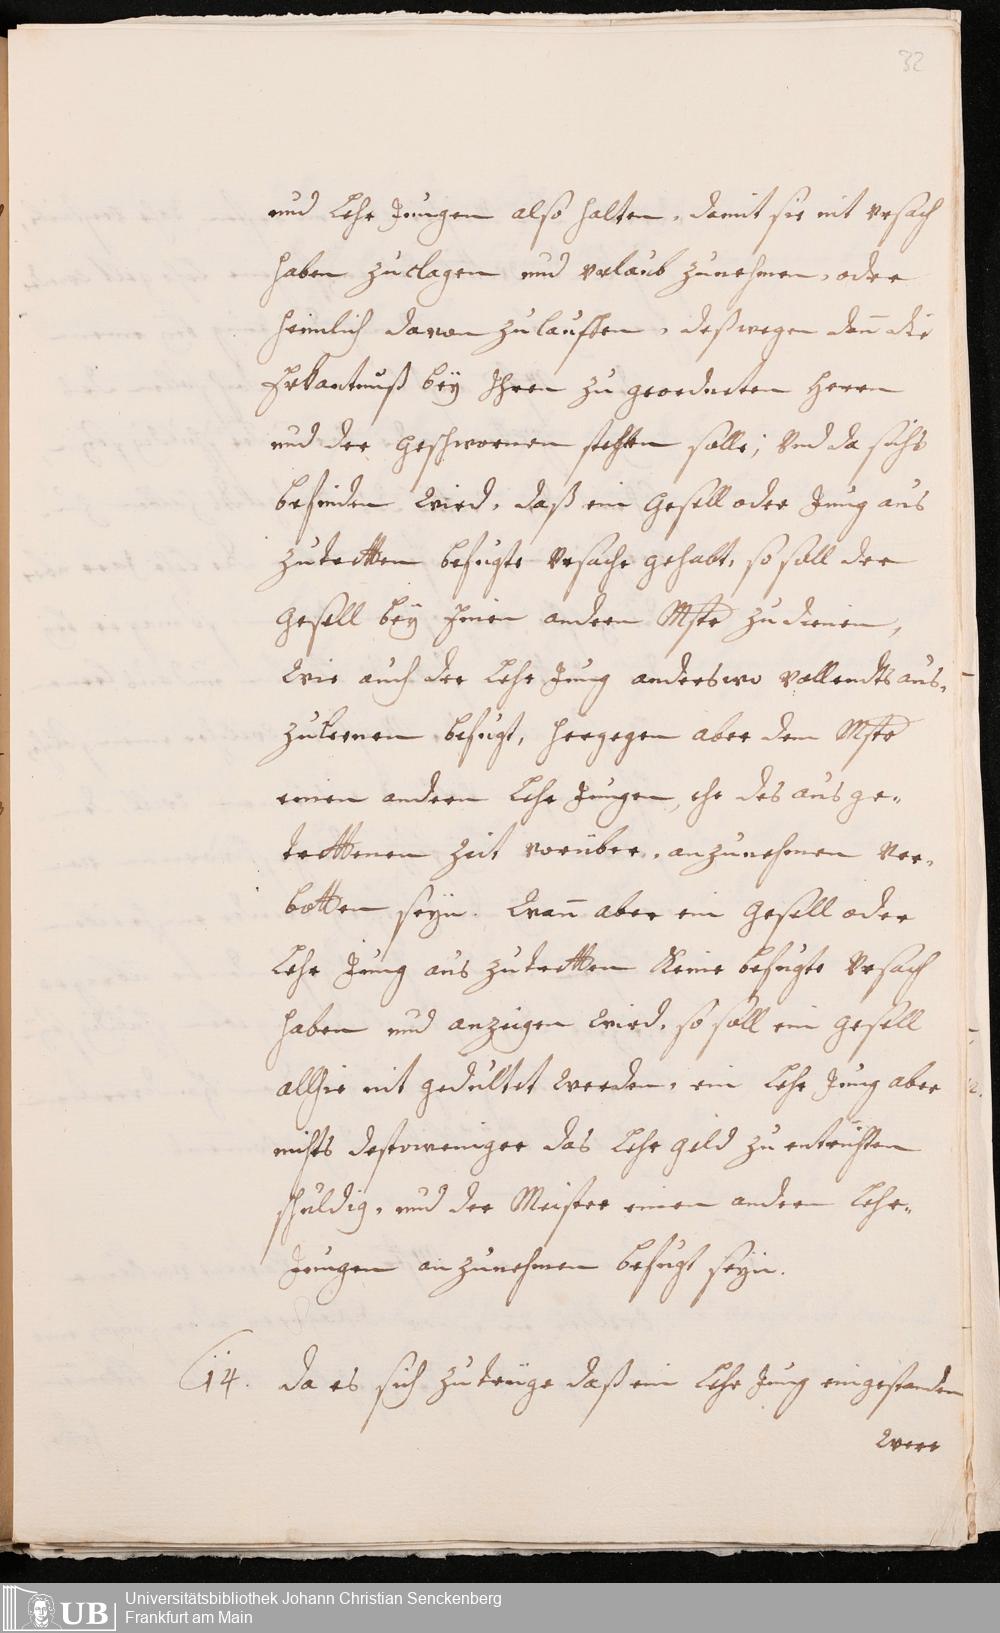 32
und Lehr Jungen also halten, damit sie nit Vrsach
haben zuclagen und vrlaub zunehmen, oder
heimlich davon zulauffen, deßwegen dan̄ die
Erkantnuß bey Ihren zu geordneten Herrn
und der Geschwornen stehen solle; Vnd da sichs
befinden Wird, daß ein Gesell oder Jung aus
zutretten befugte Vrsache gehabt, so soll der
Gesell bey Jmen andern Mstr zu dienen,
Wie auch der Lehr Jung anderswo Vollendts aus-
zulernen befugt, hergegen aber dem Mstr
einen andern Lehr Jungen, ehe des aus ge-
trettenen Zeit vorüber, anzunehmen Ver-
botten seyn. Wan̄ aber ein Gesell oder
Lehr Jung aus zutretten Keine befugte Vrsach
haben und anzeigen Wird, so soll ein Gesell
allhie nit gedultet Werden, ein Lehr Jung aber
nichts destoweniger das Lehr geld zu entrichten
schuldig, und der Meister einen andern Lehr-
Jungen anzunehmen befugt seyn.
14. Da es sich zutrüge daß ein Lehr Jung eingestanden
Were
UB
Universitätsbibliothek Johann Christian Senckenberg
Frankfurt am Main